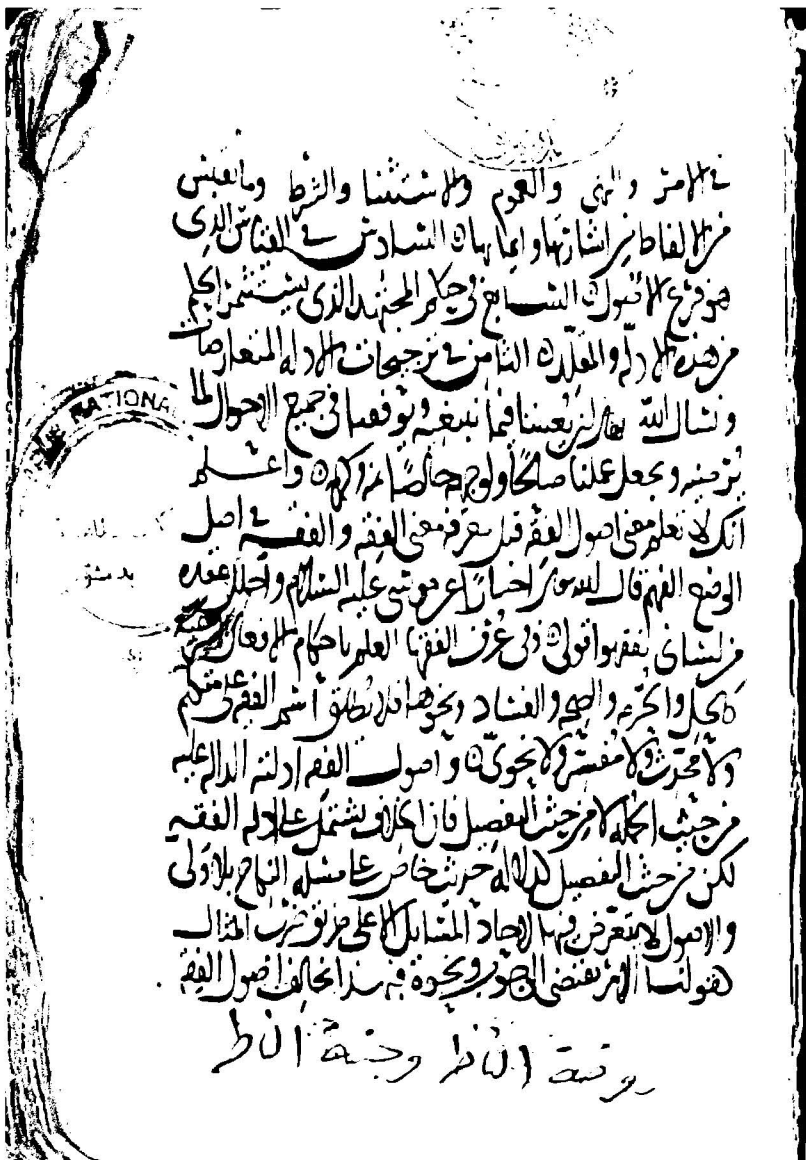 في الامر والنهي والعموم والاستثنا والشرط وما يقتبس
من الالفاظ من اشاراتها وايمايها السادس في القياس الذي
هو فرع الاصول السابع في حكم المجتهد الذي يستثمر الحكم
من هذه الادله والمقلد الثامن في ترجيحات الادله المتعارضات
ونسال الله تعالى ان يعيننا فيما نبتغيه ويوفقنا في جميع الاحوال لما
يرضيه ويجعل عملنا صالحا ولوجهه خالصا بمنه وكرمه واعلم
انك لا تعلم معنى اصول الفقه قبل معرفة معنى الفقه والفقه في اصل
الوضع الفهم قال الله تعالى اخبارا عن موسى عليه السلام واحلل عقده
من لساني يفقهوا قولي وفي عرف الفقها العلم باحكام الافعال الشرعية
كالحل والحرمه والصحه والفساد ونحوها فلا يطلق اسم الفقيه على متكلم
ولا محدث ولا مفسر ولا نحوي واصول الفقه ادلته الداله عليه
من حيث الجمله لا من حيث التفصيل فان الخلاف يشتمل على ادله الفقه
لكن من حيث التفصيل كدلاله حديث خاص على مسله النكاح بلا ولي
والاصول لا يتعرض فيها لاحاد المسايل الا على طريق ضرب المثال
كقولنا الامر يقتضي الوجوب ونحوه فبهذا يخالف اصول الفقه
روضة الناظر وجنة المناظر
NATIONA
بدمشق